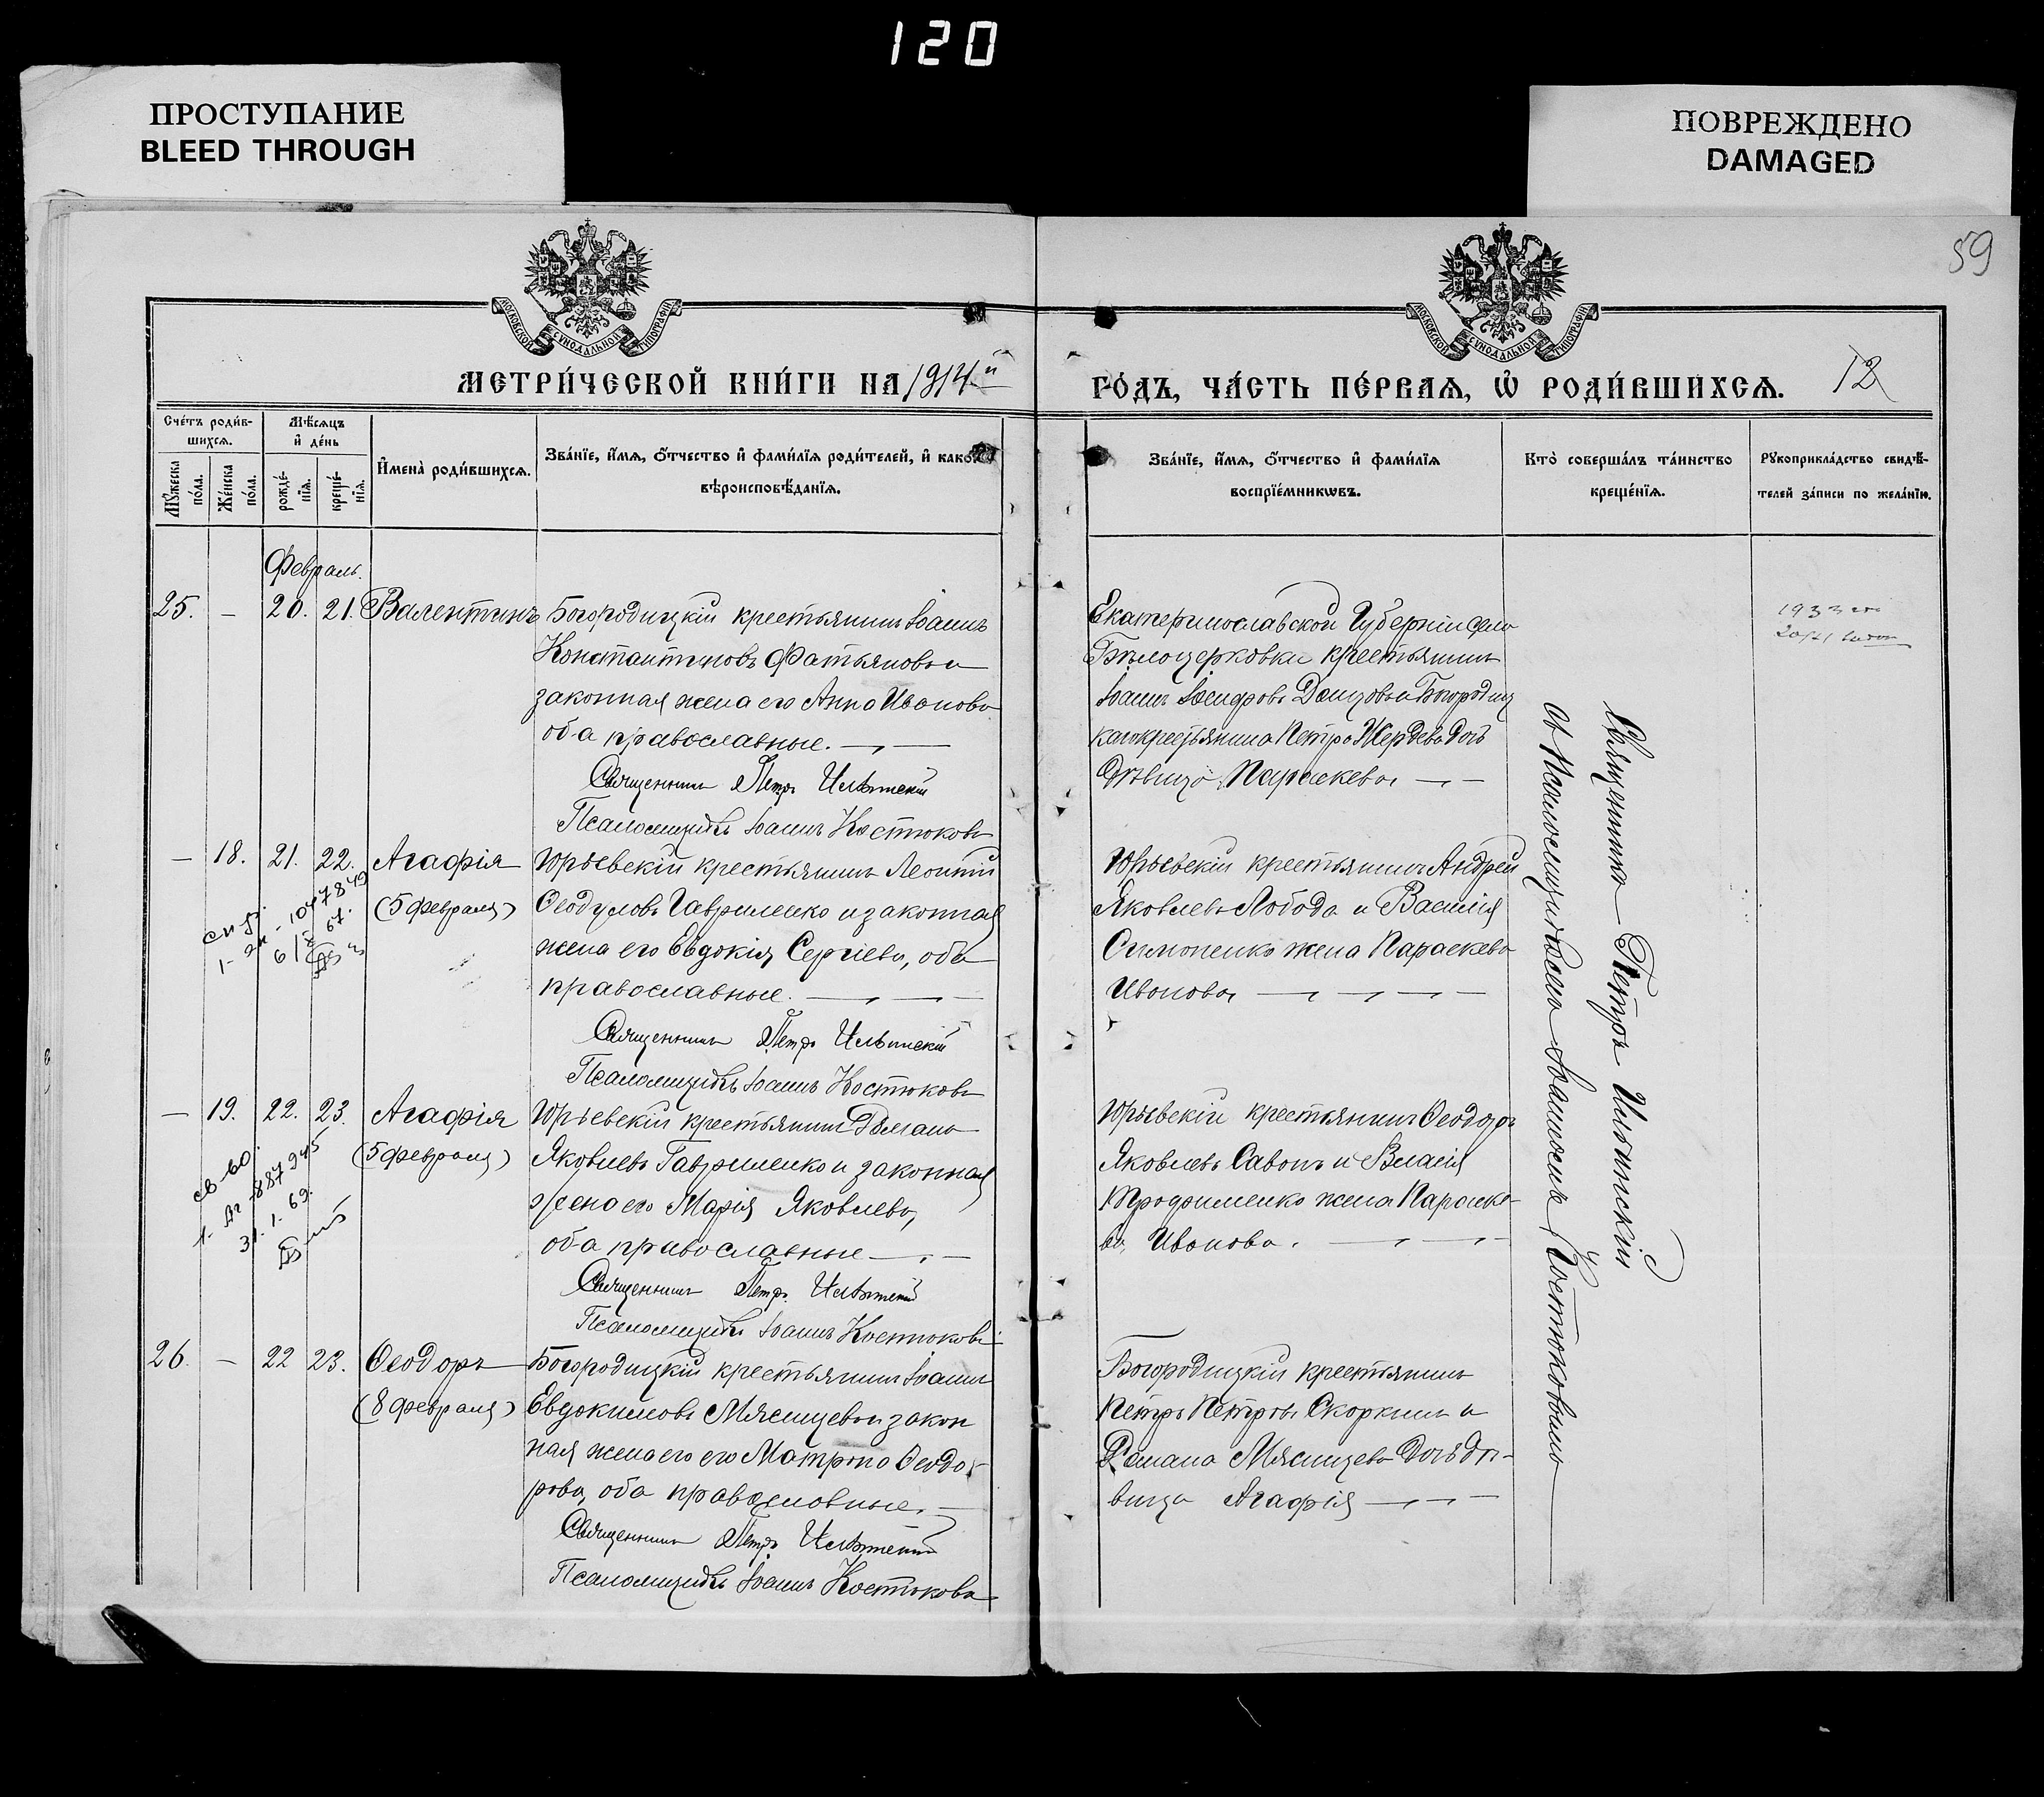 120
ПРОСТУПАНИЕ
BLEED THROUGH
ПОВРЕЖДЕНО
DAMAGED
59
МОСКОВСКОЙ СѴНОДАЛЬНОЙ ТИПОГРАФІИ
МОСКОВСКОЙ СѴНОДАЛЬНОЙ ТИПОГРАФІИ
МЕТРИ́ЧЕСКОЙ КНИ́ГИ НА 1914й
ГО́ДЪ, ЧА́СТЬ ПЕ́РВАѦ, Ѡ҆ РОДИ́ВШИХСѦ. 12
Сче́тъ роди́в-
шихсѧ.
Мѣ́сѧцъ
и҆ де́нь
Мꙋ́жеска по́ла.
Же́нска по́ла.
рожде́-нїѧ.
креще́-нїѧ.
И҆мена̀ роди́вшихсѧ.
Зва́нїе, и҆́мѧ, ѻ҆́тчество и҆ фами́лїѧ роди́телей, и҆ како́гѡ
вѣроисповѣ́данїѧ.
Зва́нїе, и҆́мѧ, ѻ҆́тчество и҆ фами́лїѧ
воспрїе́мникѡвъ.
Кто̀ соверша́лъ та́инство
креще́нїѧ.
Рꙋкоприкла́дство свидѣ́-
телей за́писи по жела́нїю.
Февраль.
25. — 20. 21. Валентинъ
Богородицкій крестьянинъ Іоаннъ
Константиновъ Фатьяновъ и
законная жена его Анна Иванова
оба православные.
Священникъ Петръ Ильинскій
Псаломщикъ Іоаннъ Костюковъ
Екатеринославской Губерніи села
Бѣлоцерковки крестьянинъ
Іоаннъ Донцовъ и Богородиц
каго крестьянина Петра Жердева дочь
дѣвица Параскева
1933
— 18. 21. 22. Агафія
(5 февраля)
1047849
67.
Юрьевскій крестьянинъ Леонтій
Ѳеодуловъ Гавриленко и законная
жена его Евдокія Сергіева, оба
православные.
Священникъ Петръ Ильинскій
Псаломщикъ Іоаннъ Костюковъ
Юрьевскій крестьянинъ Андрей
Яковлевъ Лобода и Василія
Симоненко жена Параскева
Иванова
— 19. 22. 23. Агафія
(5 февраля)
св-во.
887945
31. 1. 69.
Юрьевскій крестьянинъ Романъ
Яковлевъ Гавриленко и законная
жена его Марія Яковлева,
оба православные
Священникъ Петръ Ильинскій
Псаломщикъ Іоаннъ Костюковъ
Юрьевскій крестьянинъ Ѳеодоръ
Яковлевъ и Власія
Трофименко жена Параске-
ва Иванова.
26. — 22 23. Ѳеодоръ
(8 февраля)
Богородицкій крестьянинъ Іоаннъ
Евдокимовъ Мясищевъ и закон
ная жена его его Матрона Ѳеодо-
рова, оба православные.
Священникъ Петръ Ильинскій
Псаломщикъ Іоаннъ Костюковъ
Богородицкій крестьянинъ
Петръ Петровъ Скоркинъ и
Романа Мясищева дочь дѣ-
вица Агафія
Священникъ Петръ Ильинскій
съ Псаломщикомъ Іоанномъ Костюковымъ